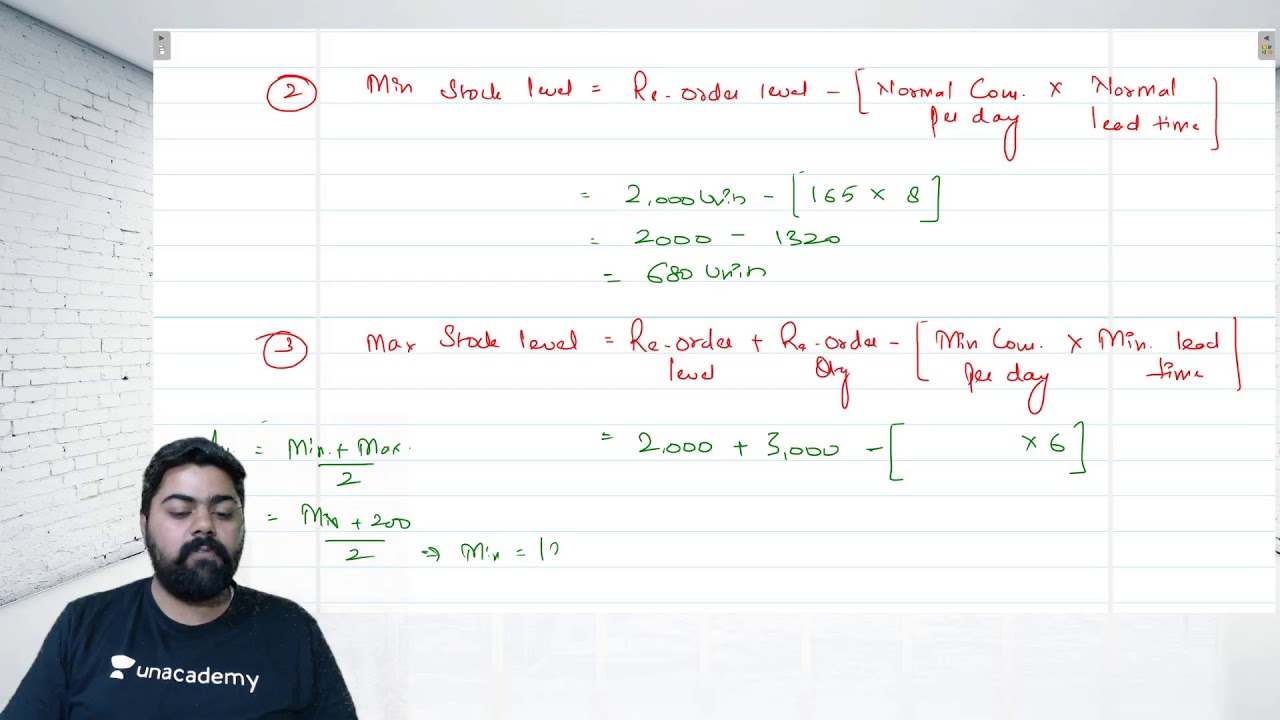 2 Min Stock level = Re-order level - [Normal Con. per day × Normal lead time]
= 2,000 Units - [165 × 8]
= 2000 - 1320
= 680 Units
3 Max Stock level = Re-order level + Re-order Qty - [Min Con. per day × Min. lead time]
= 2,000 + 3,000 - [ × 6]
= Min. + Max. / 2
= Min + 200 / 2 → Min = 13
unacademy